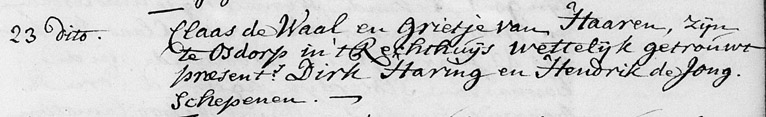 23 Dito. Claas de Waal en Grietje van Haaren, zijn
te Osdorp in 't Rechthuijs wettelijk getrouwt
present.s Dirk Haring en Hendrik de Jong.
Schepenen. —